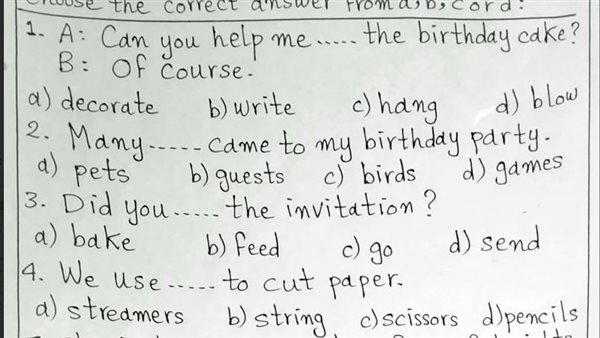 Choose the correct answer from a, b, c or d:
1. A: Can you help me ..... the birthday cake?
B: Of Course.
a) decorate b) write c) hang d) blow
2. Many ----- came to my birthday party.
a) pets b) guests c) birds d) games
3. Did you ..... the invitation?
a) bake b) feed c) go d) send
4. We use ----- to cut paper.
a) streamers b) string c) scissors d) pencils